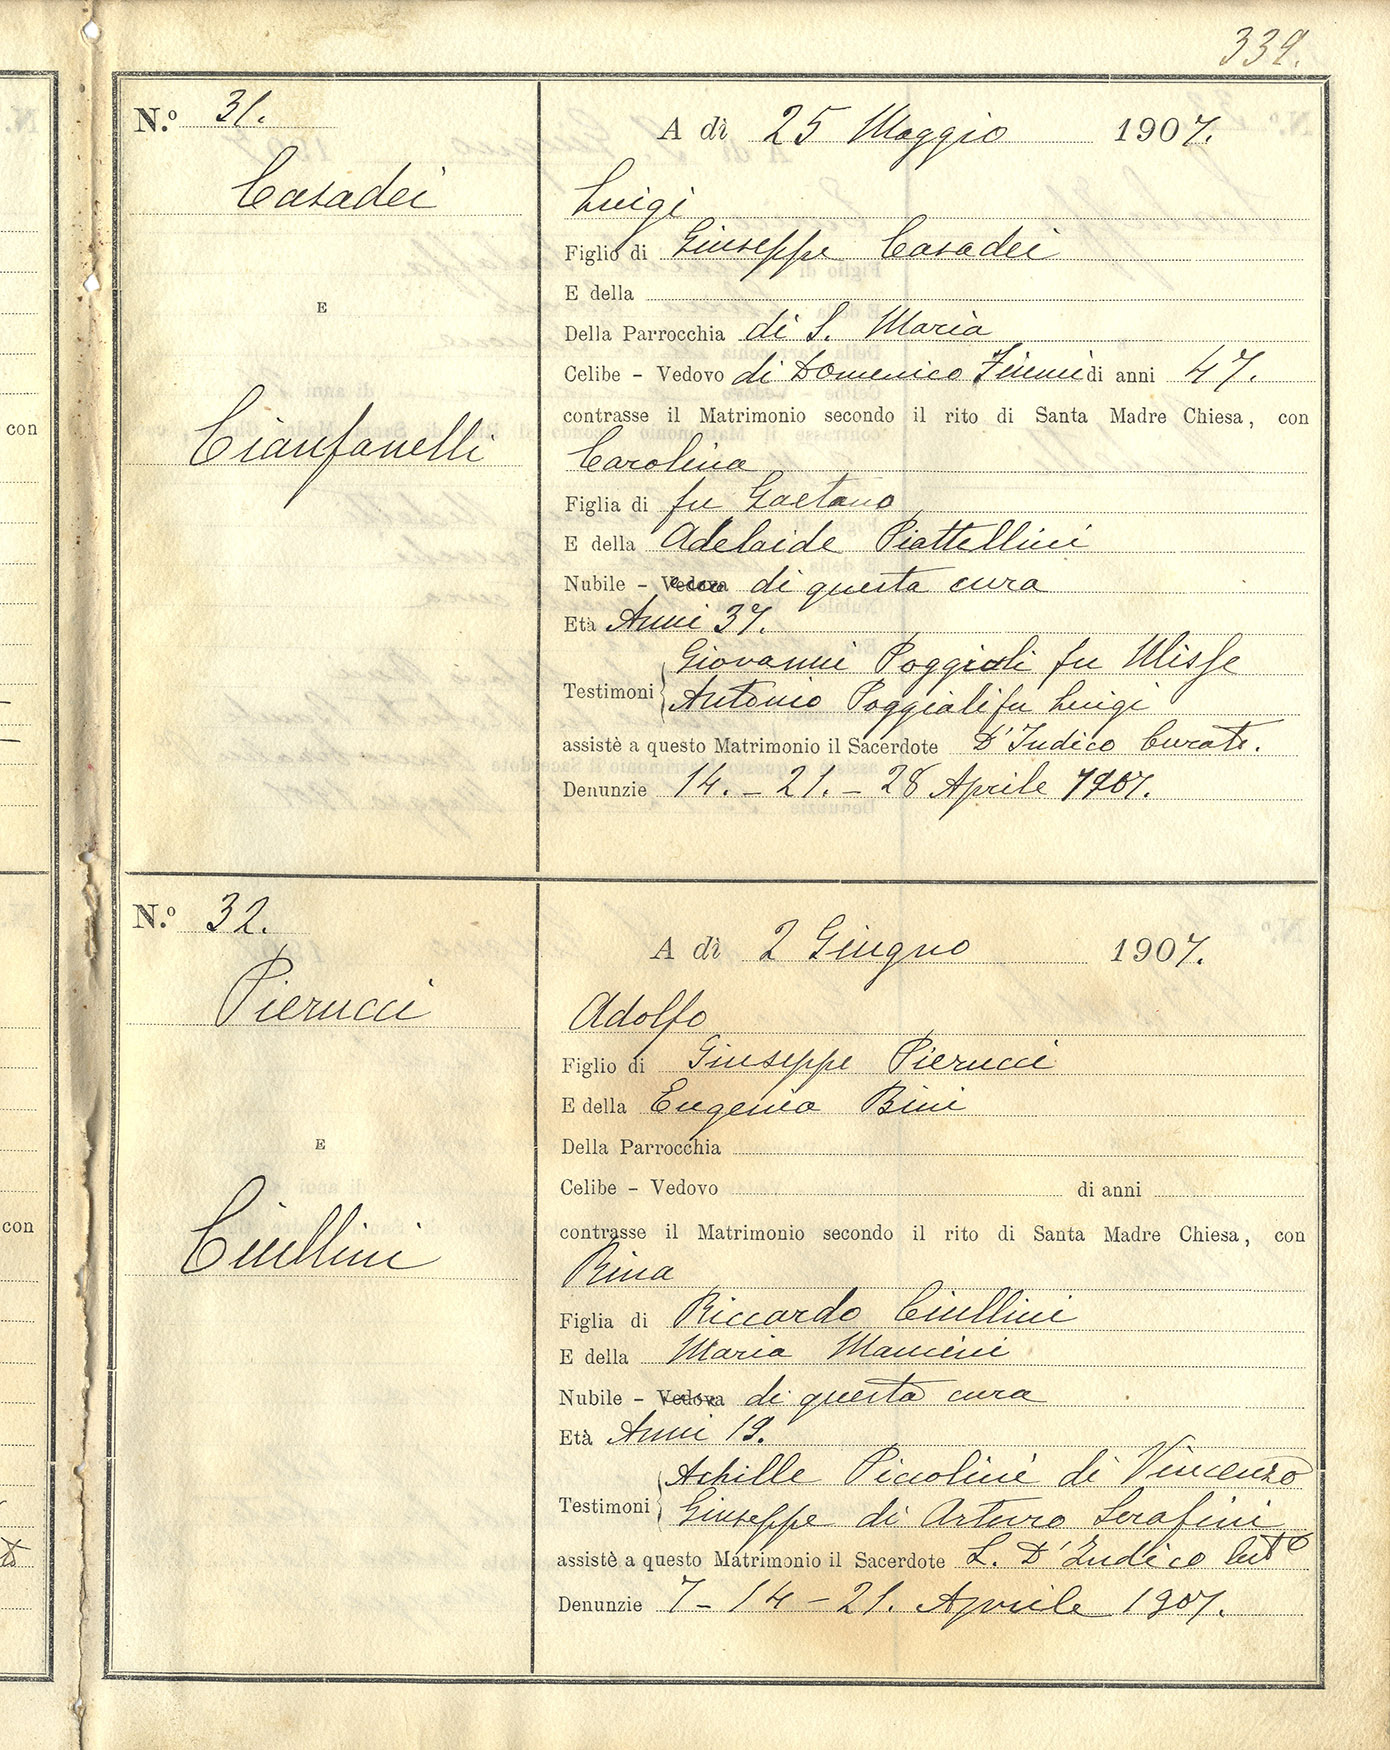 339.
N.o 31.
Casadei
E
Cianfanelli
A dì 25 Maggio 1907.
Luigi
Figlio di Giuseppe Casadei
E della
Della Parrocchia di S. Maria
Celibe - Vedovo di Domenica di anni 47.
contrasse il Matrimonio secondo il rito di Santa Madre Chiesa, con
Carolina
Figlia di fu Gaetano
E della Adelaide Piattellini
Nubile - Vedova di questa cura
Età Anni 37.
Giovanni Poggiali fu Ulisse
Testimoni
Antonio Poggiali fu Luigi
assistè a questo Matrimonio il Sacerdote D'Indico Curato.
Denunzie 14. - 21. - 28 Aprile 1907.
N.o 32.
Pierucci
E
Ciullini
A dì 2 Giugno 1907.
Adolfo
Figlio di Giuseppe Pierucci
E della Eugenia Bini
Della Parrocchia
Celibe - Vedovo di anni
contrasse il Matrimonio secondo il rito di Santa Madre Chiesa, con
Rina
Figlia di Riccardo Ciullini
E della Maria Mancini
Nubile - Vedova di questa cura
Età Anni 19.
Achille Piccolini di Vincenzo
Testimoni
Giuseppe di Arturo Serafini
assistè a questo Matrimonio il Sacerdote L. D'Indico
Denunzie 7 - 14 - 21. Aprile 1907.
con
con